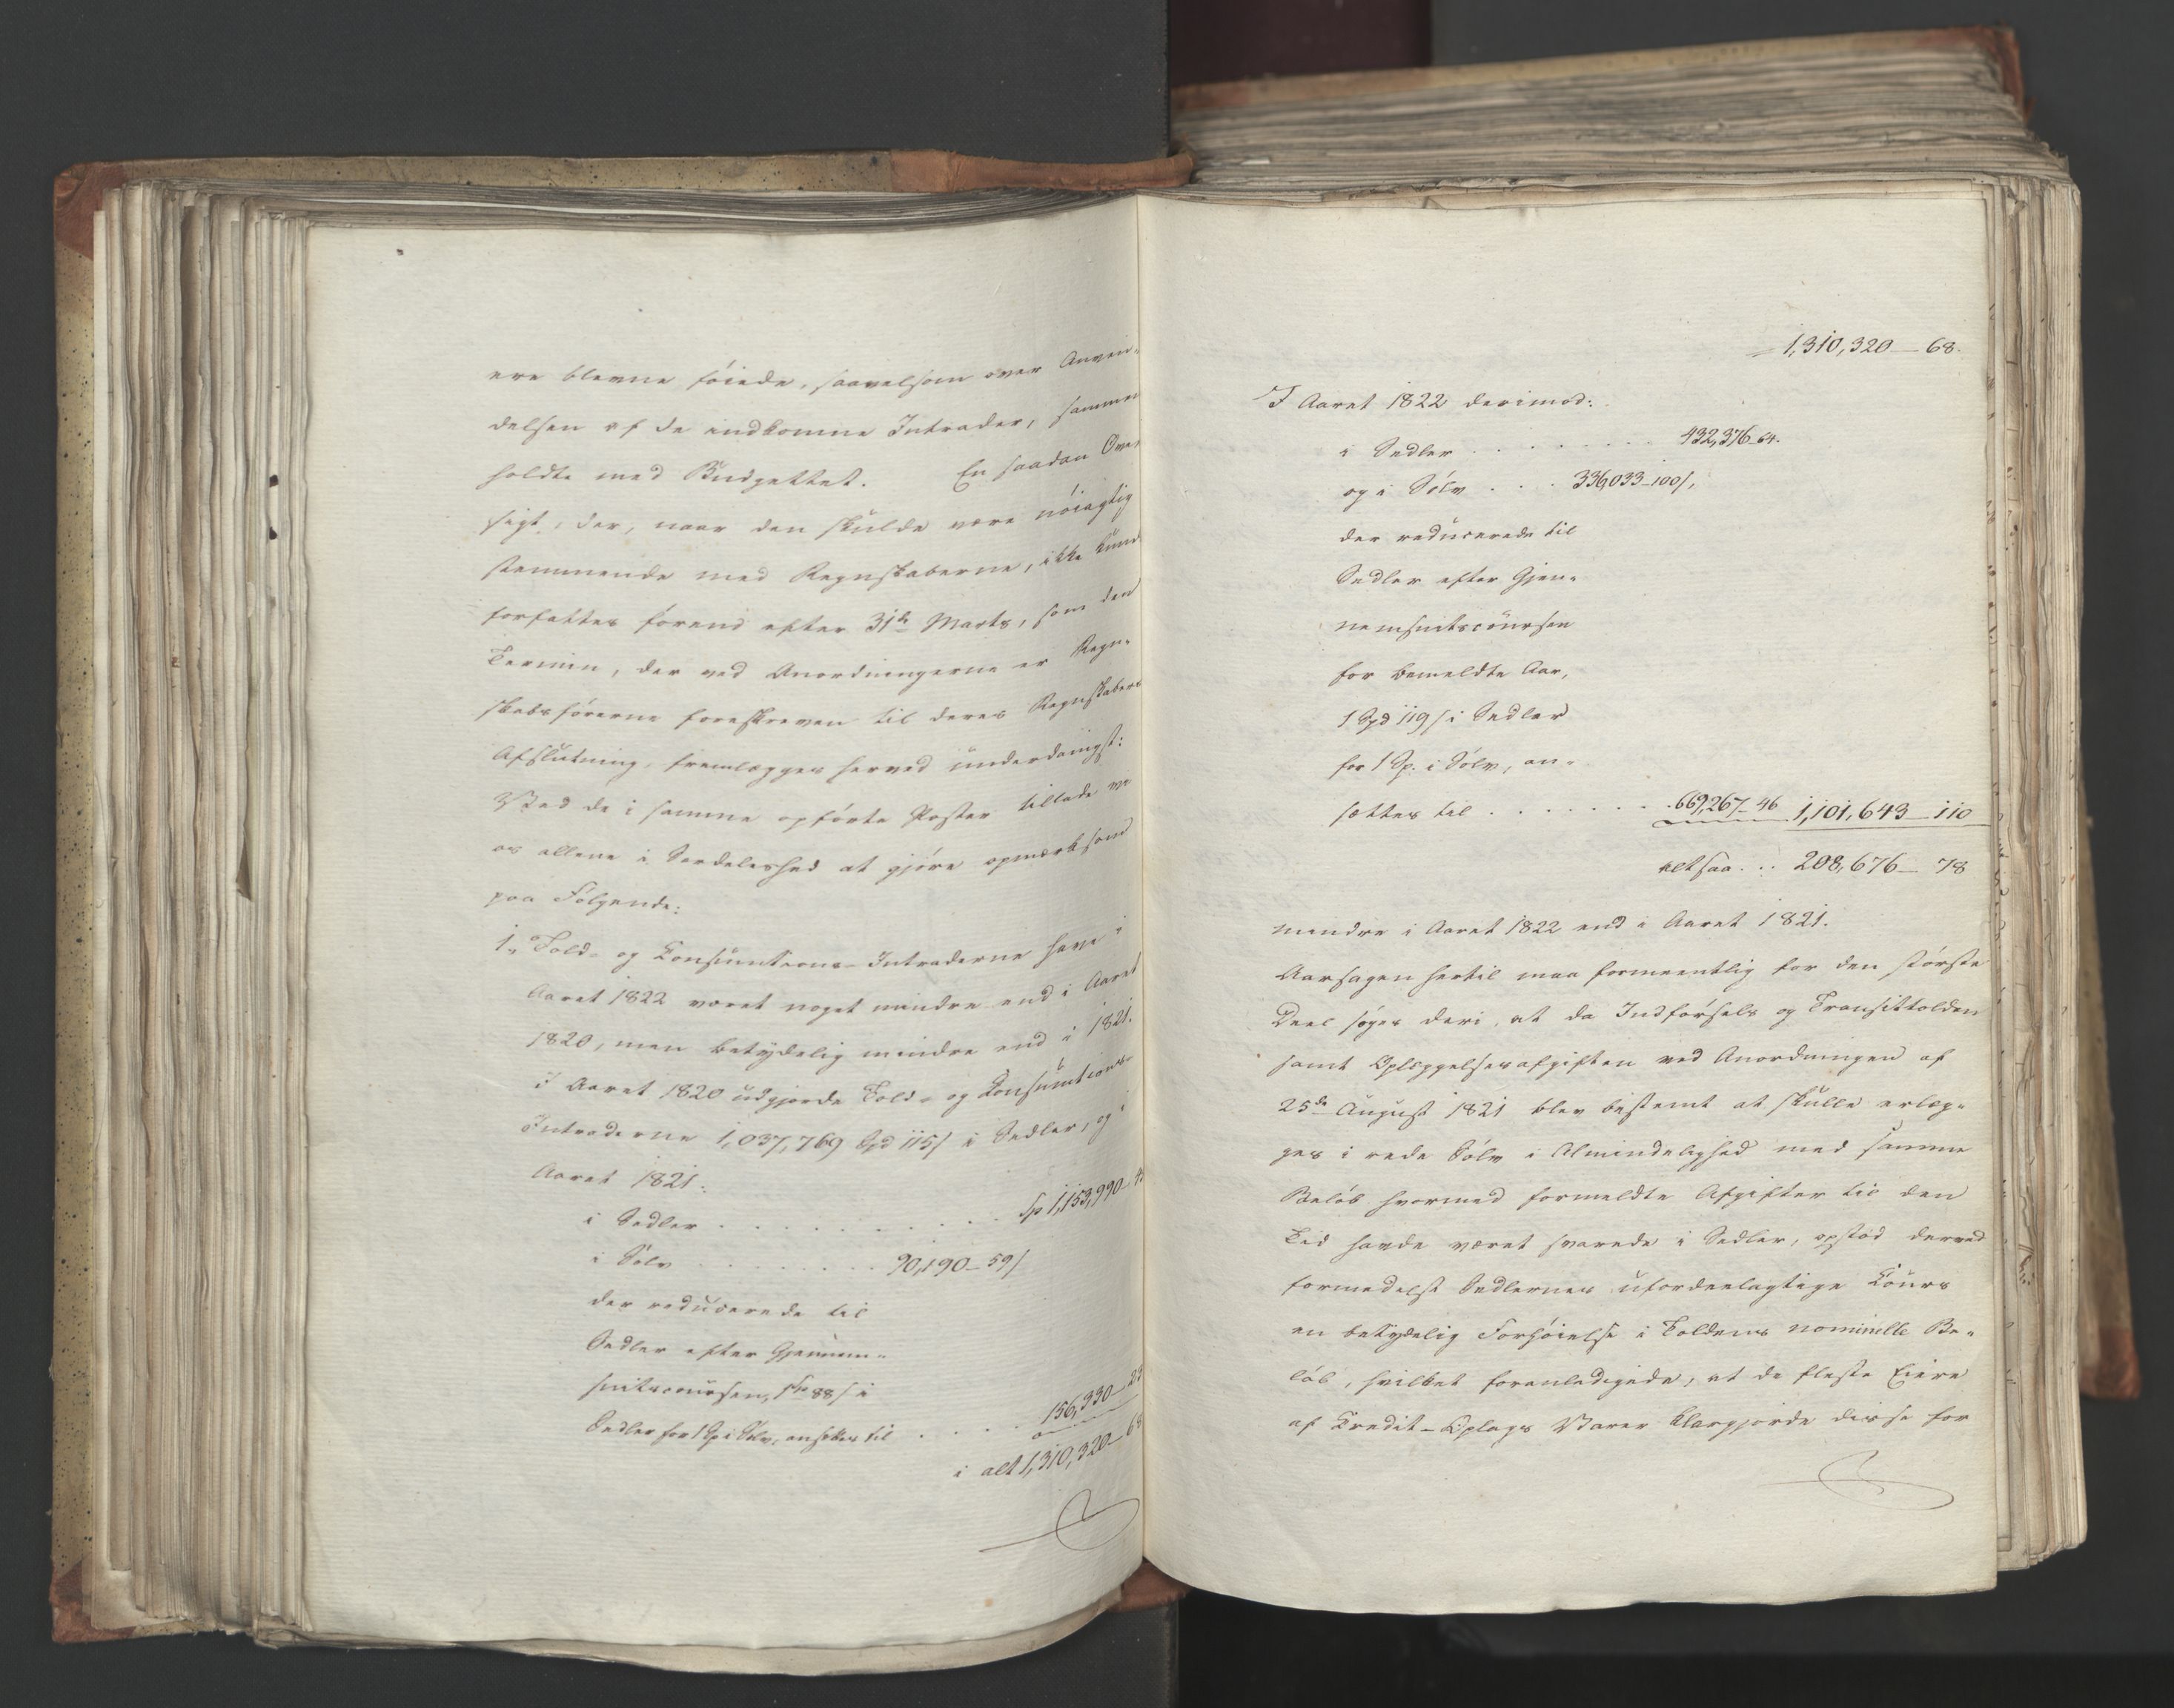 ere blevne föiede, saavelsom over Anven-
delsen af de indkomne Intrader, sammen
holdte med Budgettet. En saadan Over
sigt, der, naar den skulde være nöiagtig
stemmende med Regnskaberne, ikke kund
forfattes förend efter 31te Marts, som den
Termin, der ved Anordningerne er Regn-
skabsförerne foreskreven til deres Regnskabers
Afslutning, fremlægges herved underdanigst:
Ved de i samme opförte Poster tillade vi
os allene i Særdeleshed at gjöre opmærksom
paa Fölgende:
1, Told- og Consumtions-Intraderne have i
Aaret 1822 været noget mindre end i Aaret
1820, men betydelig mindre end i 1821.
I Aaret 1820 udgjorde Told- og Consumtions-
Intraderne 1,037,769 Spd 115 s i Sedler, og i
Aaret 1821:
i Sedler . . . . . . . . . . Sp 1,153,990 - 4
i Sölv . . . . . . . . 90,190 - 59 s
der reducerede til
Sedler efter Gjennem-
snitscoursen, 1 Sp 88 s i
Sedler for 1 Sp i Sölv, ansættes til . . . . 156,330 - 23
i alt 1,310,320 - 68
1,310,320 - 68.
I Aaret 1822 derimod:
i Sedler . . . . . . . . 432,376 - 64.
og i Sölv . . . 336,033 - 100 s,
der reducerede til
Sedler efter Gjen-
nemsnitscoursen
for bemeldte Aar,
1 Spd 119 s i Sedler
for 1 Sp. i Sölv, an-
sættes til . . . . . . . . 669,267 - 46 1,101,643 - 110
altsaa . . . 208,676 - 78
mindre i Aaret 1822 end i Aaret 1821.
Aarsagen hertil maa formeentlig for den störste
Deel söges deri, at da Indförsels og Transittolden
samt Oplagsafgiften ved Anordningen af
25de August 1821 blev bestemt at skulle erlæg-
ges i rede Sölv i Almindelighed med samme
Belöb hvormed formeldte Afgifter til den
Tid havde været svarede i Sedler, opstod derved
formedelst Sedlernes ufordeelagtige Cours
en betydelig Forhöielse i Toldens nominelle Be-
löb, hvilket foranledigede, at de fleste Eiere
af Credit-Oplags Varer klargjorde disse for